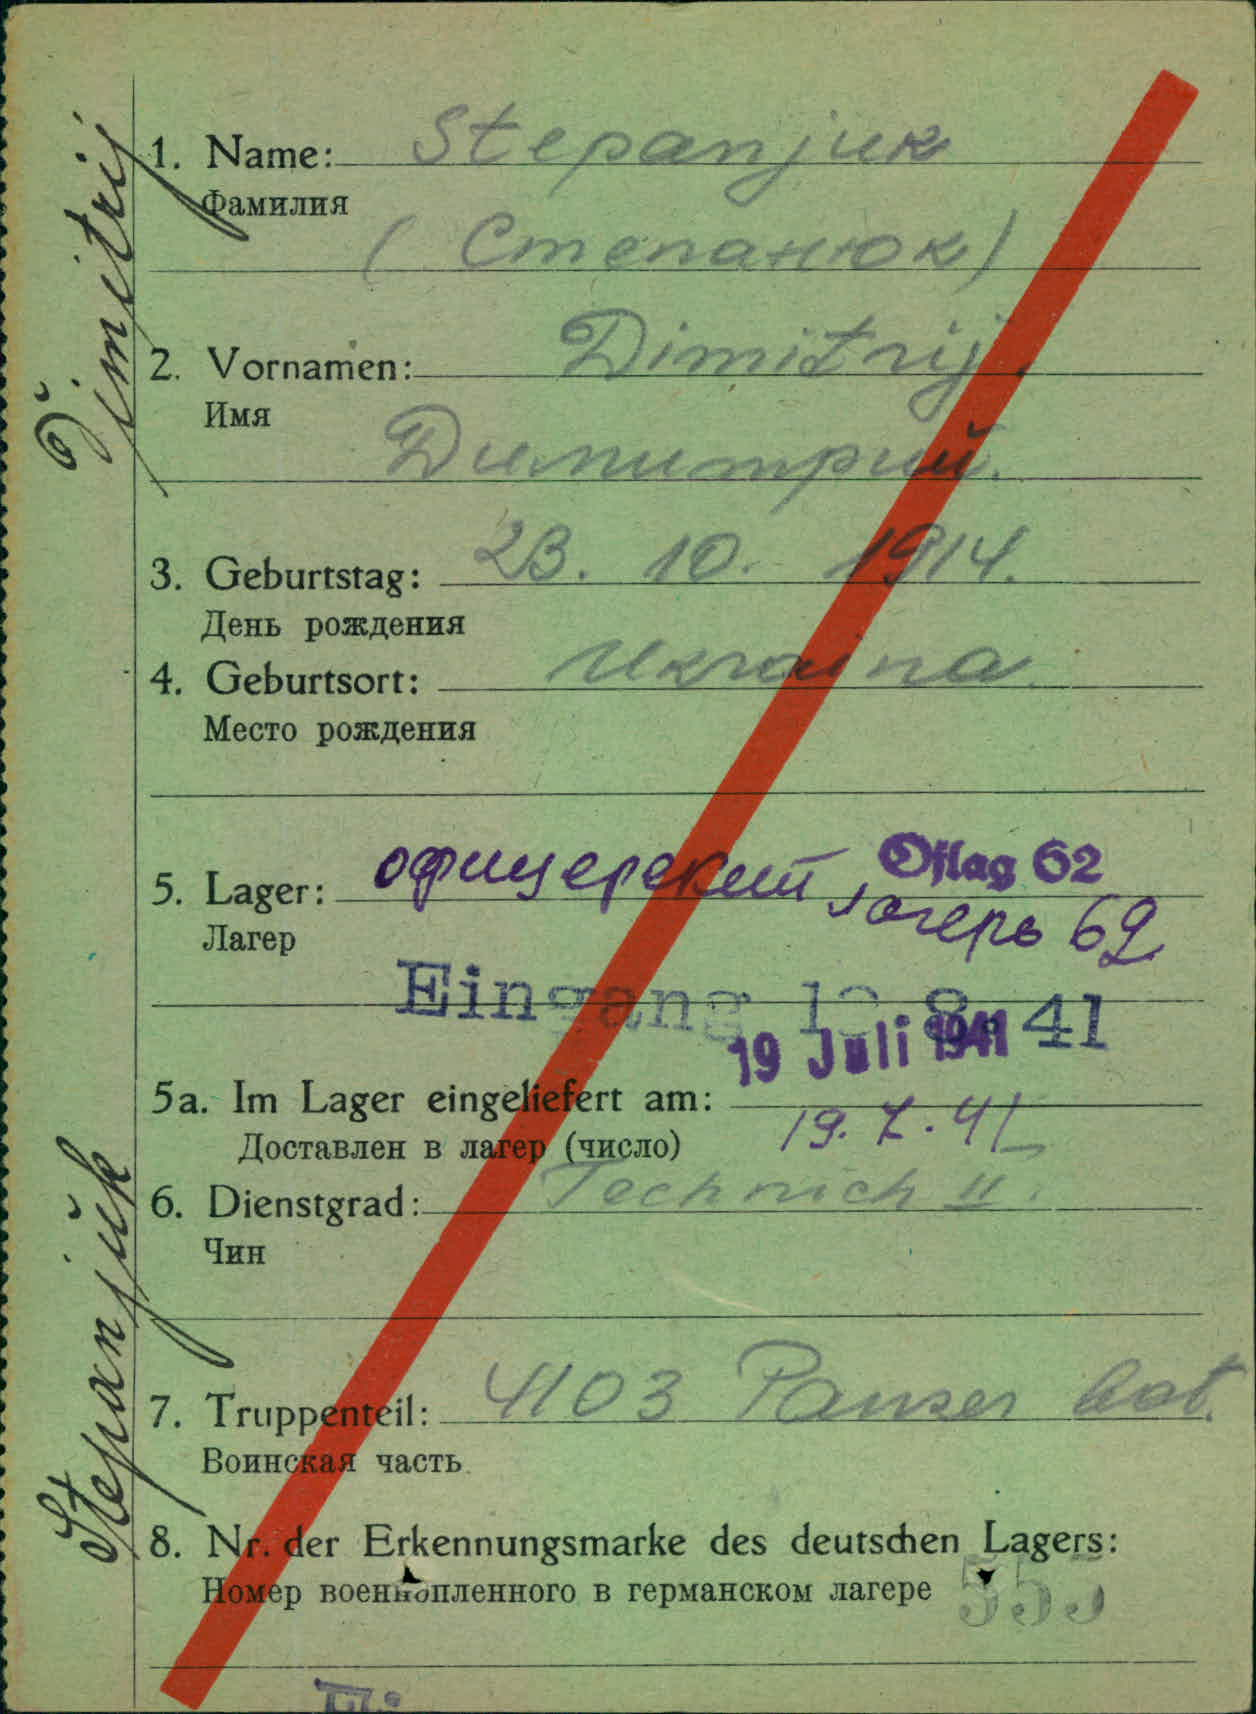 Dimitrij
Stepanjuk
1. Name: Stepanjuk
Фамилия
(Степанюк)
2. Vornamen: Dimitrij.
Имя
Димитрий.
3. Geburtstag: 23. 10. 1914.
День рождения
4. Geburtsort: Ukraina.
Место рождения
Oflag 62
5. Lager: офицерский лагерь 62
Лагер
Eingang 8. 41
19 Juli 1941
5a. Im Lager eingeliefert am:
Доставлен в лагер (число) 19. 7. 41
6. Dienstgrad: Technich II.
Чин
7. Truppenteil: 4103 Panzer bat.
Воинская часть
8. Nr. der Erkennungsmarke des deutschen Lagers:
Номер военнопленного в германском лагере 555